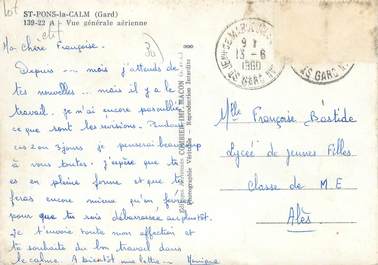 ST-PONS-la-CALM (Gard)
139-22 A - Vue générale aérienne
Ma Chère Françoise.
Depuis mois j'attends de
tes nouvelles ... mais il y a le
travail. je n'ai encore
ce que sont les révisions. Pendant
ces 2 jours je penserai beaucoup
à vous toutes. j'espère que tu
es en pleine forme et que
feras encore mieux qu'en février
pour que tu sois débarrassée
Je t'envoie toute mon affection et
te souhaite du bon travail dans
le calme. A bientôt une lettre. Monique
COMBIER IMP. MACON
Photographie Véritable - Reproduction Interdite
13-6
1960
GARE
GARD
Mlle Françoise Bastide
Lycée de Jeunes Filles
Classe de M E
Alès